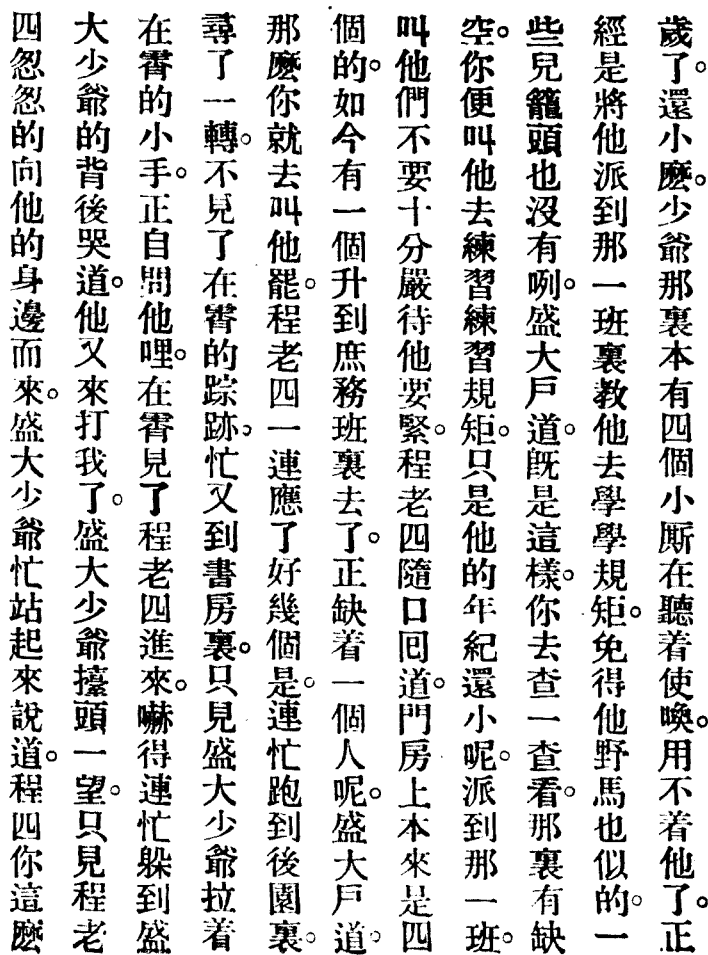 歲了。還小麽。少爺那裏本有四個小厮在聽着使喚。用不着他了。正
經是將他派到那一班裏教他去學學規矩。免得他野馬也似的。一
些兒籠頭也沒有咧。盛大戶道。旣是這樣。你去查一查看。那裏有缺
空。你便叫他去練習練習規矩。只是他的年紀還小呢。派到那一班。
叫他們不要十分嚴待他要緊。程老四隨口回道。門房上本來是四
個的。如今有一個升到庶務班裏去了。正缺着一個人呢。盛大戶道。
那麽你就去叫他罷。程老四一連應了好幾個是。連忙跑到後園裏。
尋了一轉。不見了在霄的踪跡。忙又到書房裏。只見盛大少爺拉着
在霄的小手。正自問他哩。在霄見了程老四進來。嚇得連忙躲到盛
大少爺的背後哭道。他又來打我了。盛大少爺擡頭一望。只見程老
四怱怱的向他的身邊而來。盛大少爺忙站起來說道。程四你這麽